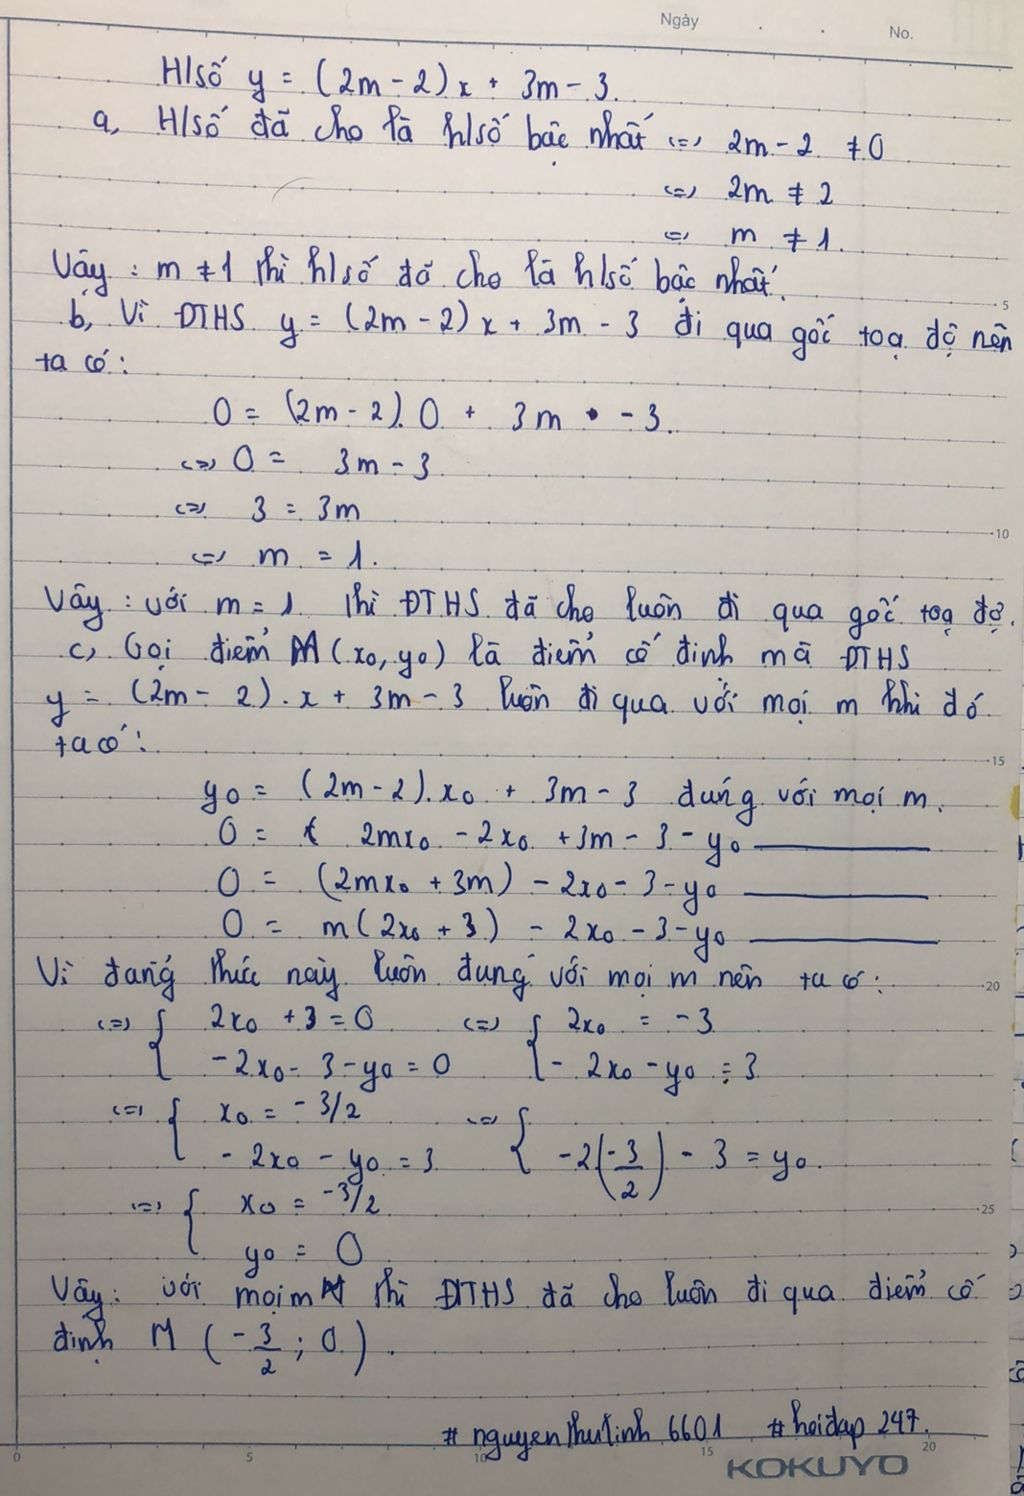 Ngày
No.
H/số y = (2m - 2)x + 3m - 3.
a, H/số đã cho là h/số bậc nhất <=> 2m - 2 ≠ 0
<=> 2m ≠ 2
<=> m ≠ 1.
Vậy : m ≠ 1 thì h/số đã cho là h/số bậc nhất.
5
b, Vì ĐTHS y = (2m - 2)x + 3m - 3 đi qua gốc toạ độ nên
ta có :
0 = (2m - 2).0 + 3m - 3.
<=> 0 = 3m - 3
<=> 3 = 3m
10
<=> m = 1.
Vậy : với m = 1 thì ĐTHS đã cho luôn đi qua gốc toạ độ.
c, Gọi điểm M(x0, y0) là điểm cố định mà ĐTHS
y = (2m - 2).x + 3m - 3 luôn đi qua với mọi m khi đó
ta có :
15
y0 = (2m - 2).x0 + 3m - 3 đúng với mọi m.
0 = 2mx0 - 2x0 + 3m - 3 - y0
0 = (2mx0 + 3m) - 2x0 - 3 - y0
0 = m(2x0 + 3) - 2x0 - 3 - y0
Vì đẳng thức này luôn đúng với mọi m nên ta có :
20
<=> { 2x0 + 3 = 0 <=> { 2x0 = -3
-2x0 - 3 - y0 = 0 - 2x0 - y0 = 3
<=> { x0 = -3/2 <=> {
- 2x0 - y0 = 3 -2(-3/2) - 3 = y0.
<=> { x0 = -3/2
25
y0 = 0
Vậy : với mọi m thì ĐTHS đã cho luôn đi qua điểm cố
định M (-3/2 ; 0).
# nguyenthutinh 6601 # hoidap 247.
0 5 10 15 20
KOKUYO